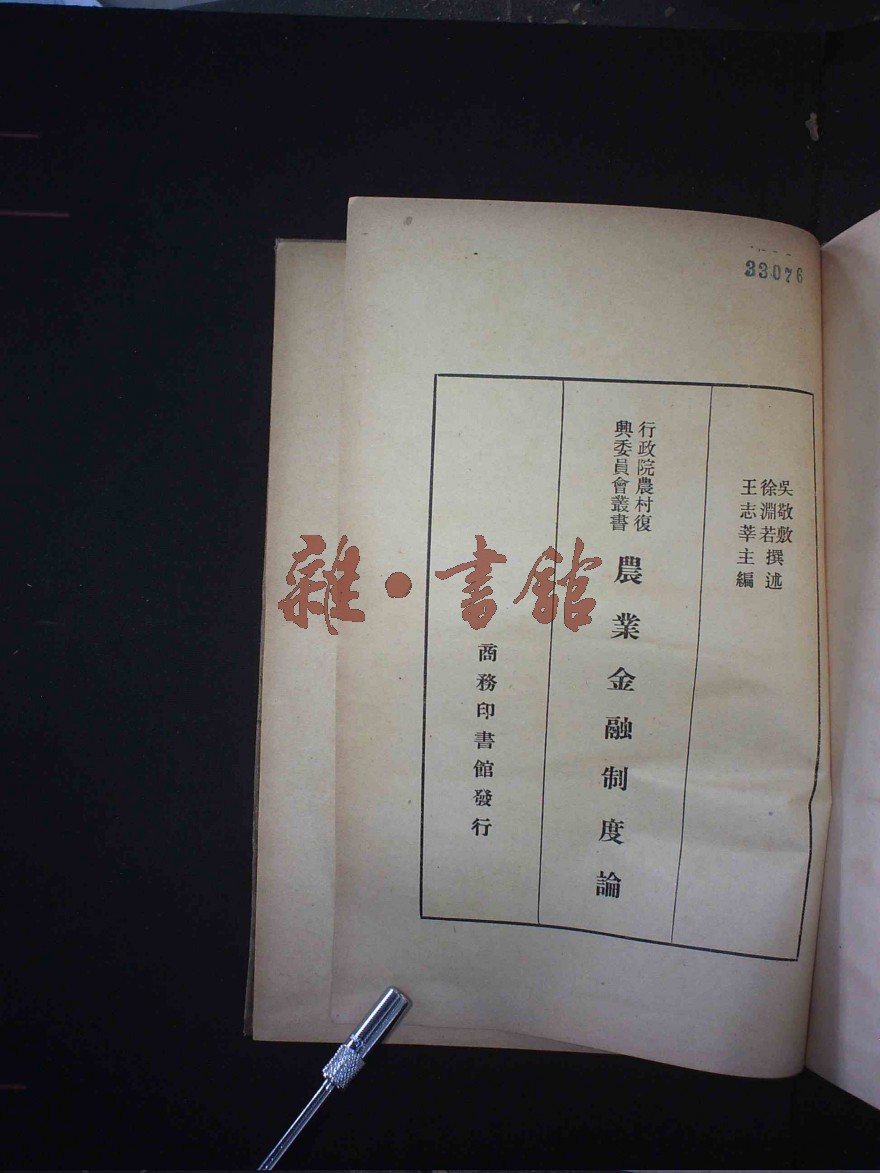 33076
吳敬敷
徐淵若撰述
王志莘主編
行政院農村復
興委員會叢書
農業金融制度論
商務印書館發行
雜·書館